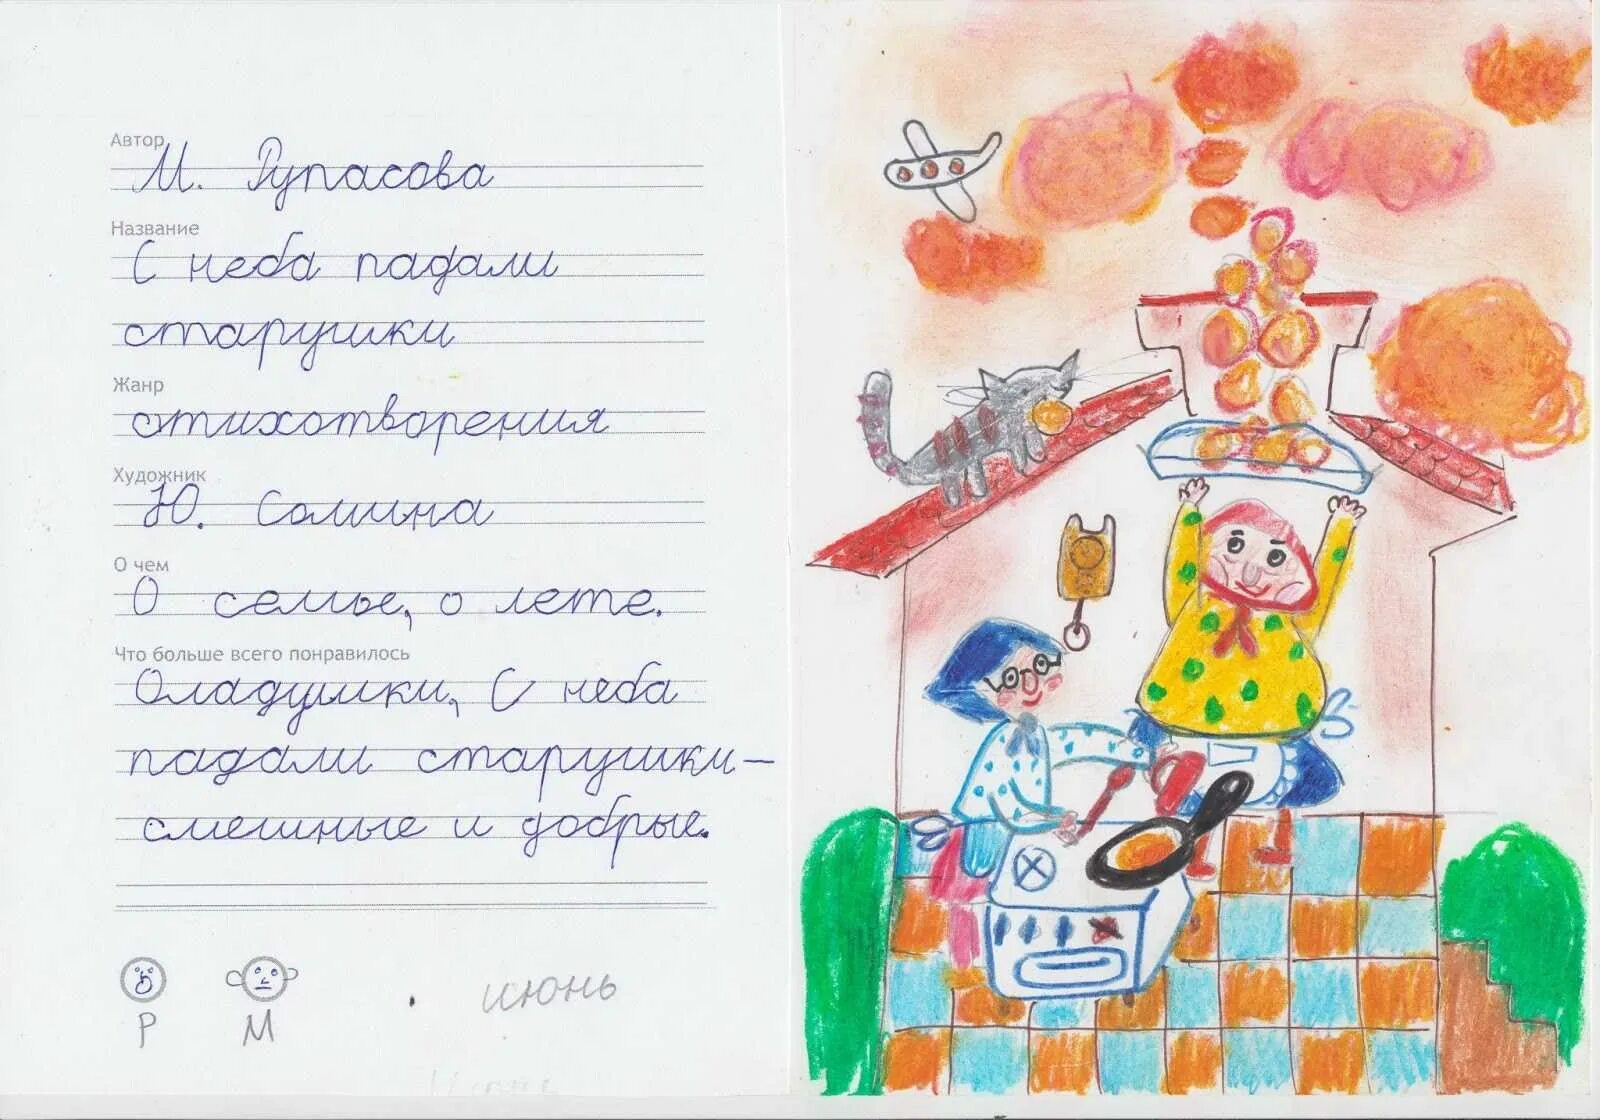 Автор
М. Рупасова
Название
С неба падали
старушки
Жанр
стихотворения
Художник
Ю. Сомина
О чем
О семье, о лете.
Что больше всего понравилось
Оладушки, С неба
падали старушки —
смешные и добрые.
Р М июнь